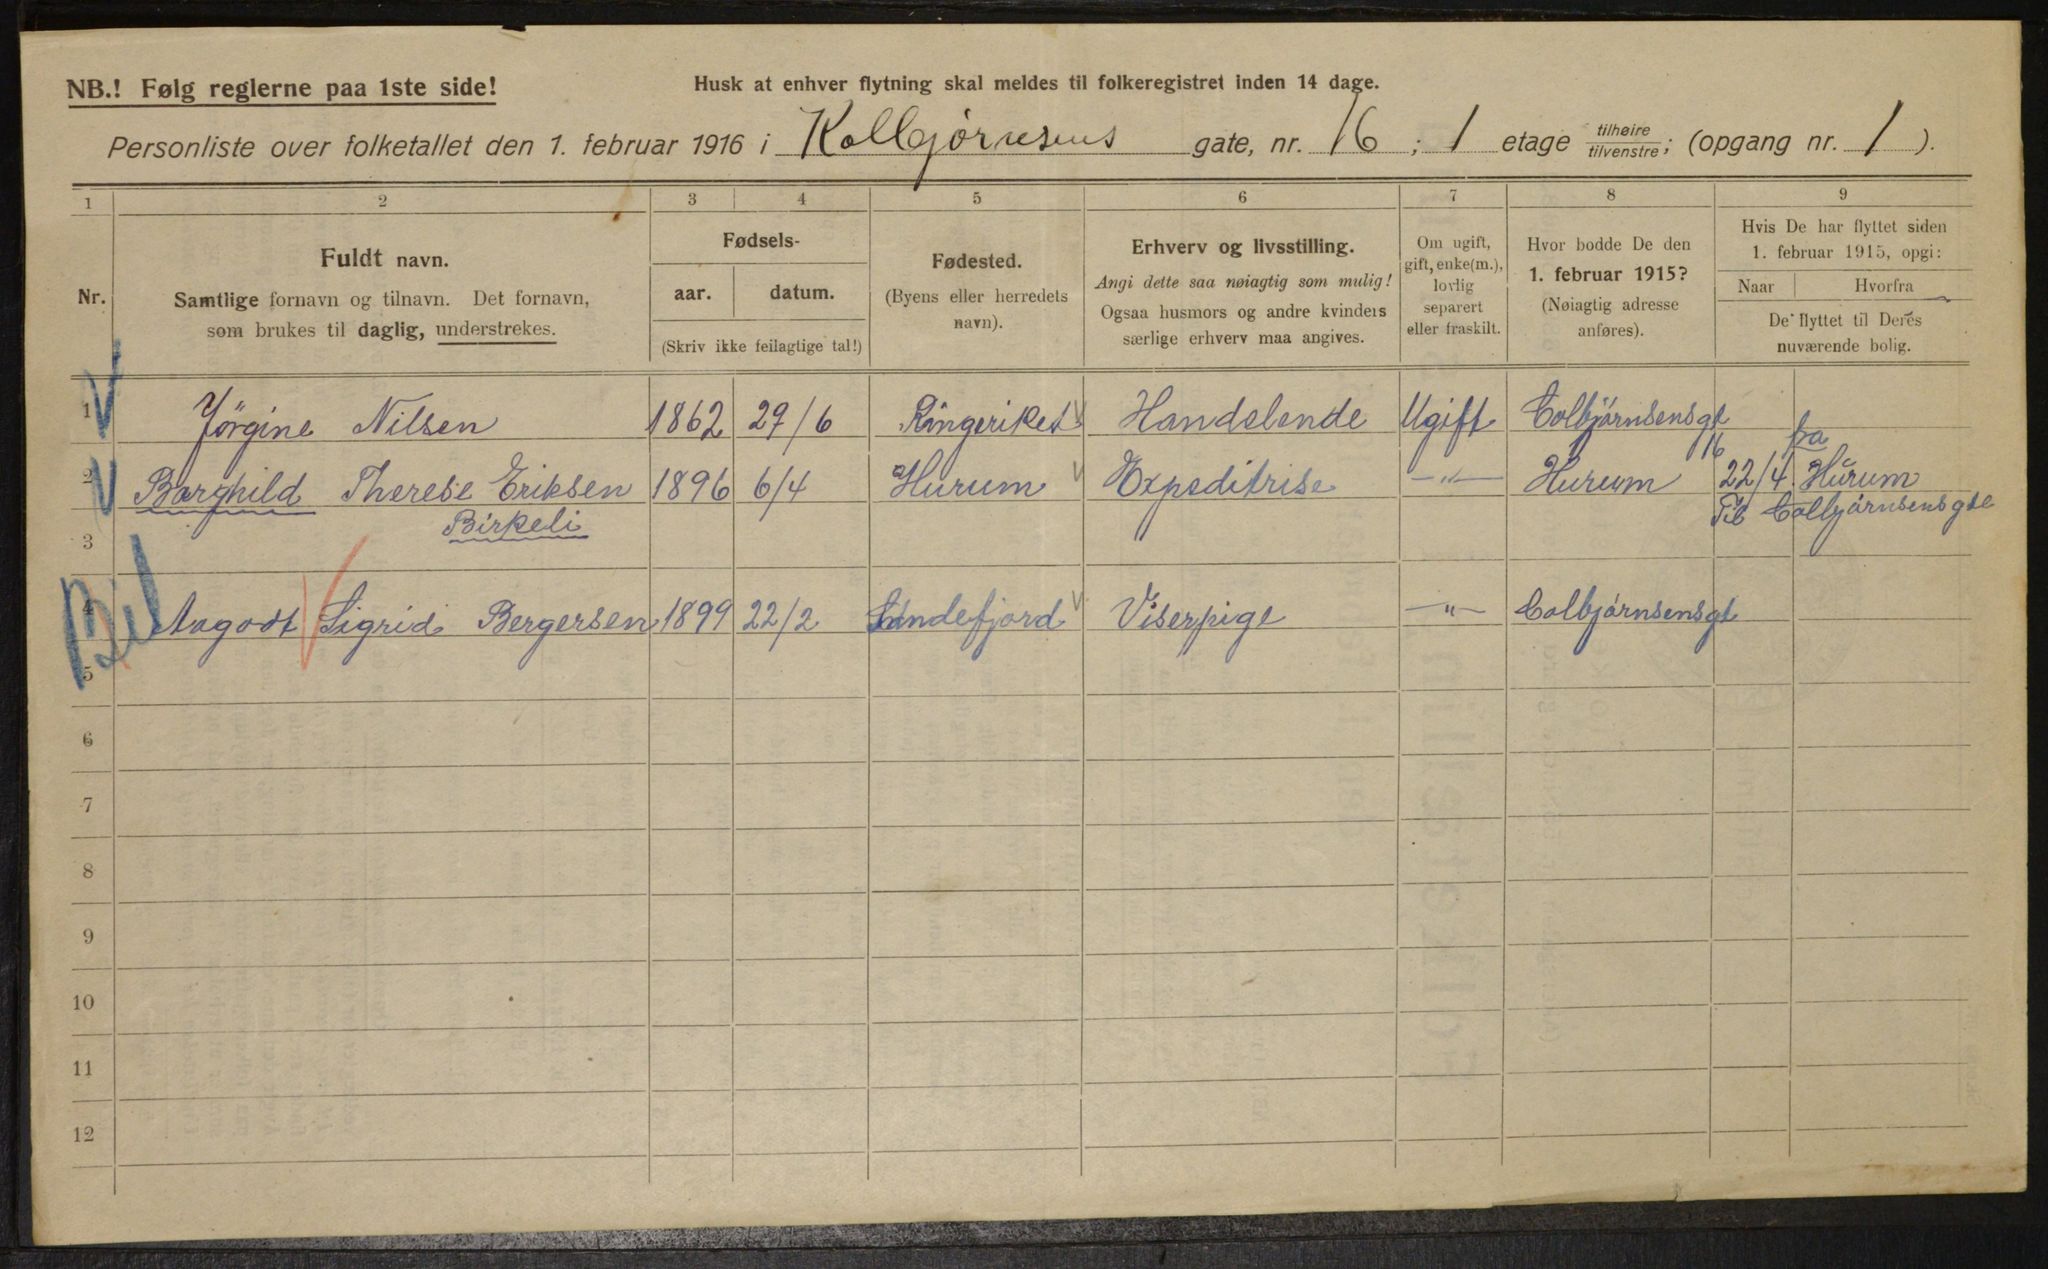 NB.! Følg reglerne paa 1ste side!
Husk at enhver flytning skal meldes til folkeregistret inden 14 dage.
Personliste over folketallet den 1. februar 1916 i Kolbjørnsens gate, nr. 16 ; 1 etage tilhøire tilvenstre; (opgang nr. 1 ).
1 2 3 4 5 6 7 8 9
Nr.
Fuldt navn.
Samtlige fornavn og tilnavn. Det fornavn,
som brukes til daglig, understrekes.
Fødsels-
aar. datum.
(Skriv ikke feilagtige tal!)
Fødested.
(Byens eller herredets
navn).
Erhverv og livsstilling.
Angi dette saa nøiagtig som mulig!
Ogsaa husmors og andre kvinders
særlige erhverv maa angives.
Om ugift,
gift, enke(m.),
lovlig
separert
eller fraskilt.
Hvor bodde De den
1. februar 1915?
(Nøiagtig adresse
anføres).
Hvis De har flyttet siden
1. februar 1915, opgi:
Naar Hvorfra
De flyttet til Deres
nuværende bolig.
1 Jörgine Nilsen 1862 29/6 Ringeriket Handelende Ugift Colbjørnsensgt
16 fra
2 Borghild Therese Eriksen 1896 6/4 Hurum Expeditrise —"— Hurum 22/4 Hurum
Birkeli Til Colbjørnsensgte
3
4 Aagodt Sigrid Bergersen 1899 22/2 Sandefjord Viserpige —"— Colbjørnsensgt
5
6
7
8
9
10
11
12